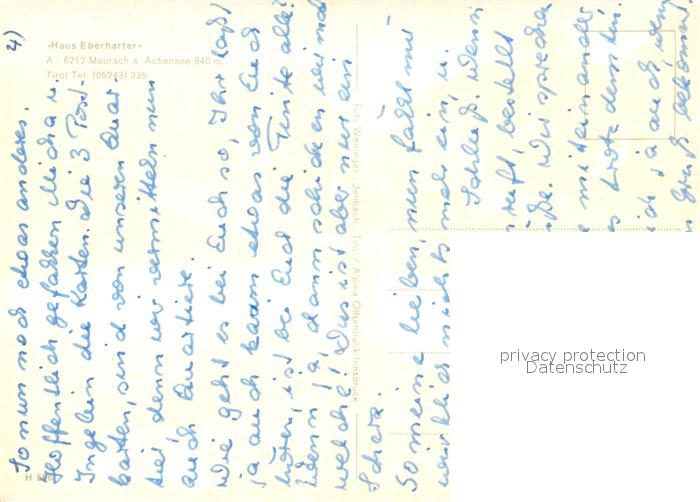 4)
«Haus Eberharter»
A - 6212 Maurach a. Achensee 940 m
Tirol Tel. (05243) 335
So nun noch etwas anderes.
Hoffentlich gefallen Micha u.
Ingelein die Karten. Die 3 Post-
karten, sind von unserem Quar
tier, denn wir vermitteln nun
auch Quartiere.
Wie geht es bei Euch so, Ihr laßt
ja auch kaum etwas von Euch
hören, ist bei Euch die Tinte alle?
Wenn ja, dann schicken wir mal
welche! Das ist aber nur ein
Scherz.
So meine lieben, nun fällt mir
wirklich nichts mehr ein, u.
Schluß. Wenn
bestellt
Wir sprechen
miteinander
trotzdem
ich ja auch, wenn
bekommt
Foto Weninger - Jenbach - Tirol / Alpina Offsetdruck Innsbruck
privacy protection
Datenschutz